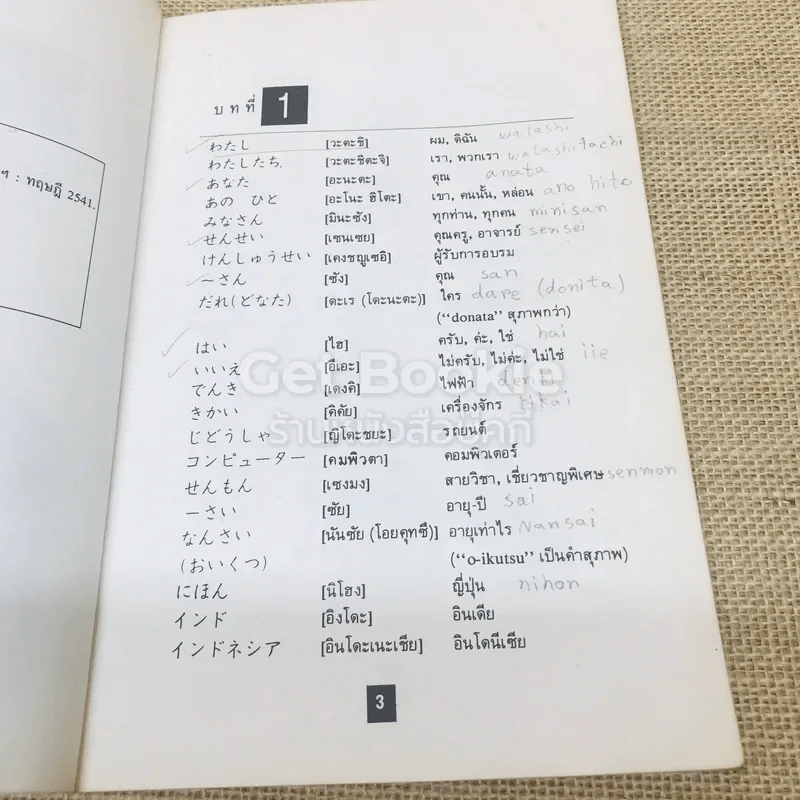 ฯ : ทฤษฎี 2541.
บทที่ 1
わたし [วะตะชิ] ผม, ดิฉัน watashi
わたしたち. [วะตะชิตะจิ] เรา, พวกเรา watashitachi
あなた [อะนะตะ] คุณ anata
あの ひと [อะโนะ ฮิโตะ] เขา, คนนั้น, หล่อน ano hito
みなさん [มินะซัง] ทุกท่าน, ทุกคน minisan
せんせい [เซนเซย] คุณครู, อาจารย์ sensei
けんしゅうせい [เคงชญูเซอิ] ผู้รับการอบรม
〜さん [ซัง] คุณ san
だれ(どなた) [ดะเร (โดะนะตะ)] ใคร dare (donita)
("donata" สุภาพกว่า)
はい [ไฮ] ครับ, ค่ะ, ใช่ hai
いいえ [อีเอะ] ไม่ครับ, ไม่ค่ะ, ไม่ใช่ iie
でんき [เดงคิ] ไฟฟ้า denki
きかい [คิคัย] เครื่องจักร kikai
じどうしゃ [ญิโดะชยะ] รถยนต์
コンピューター [คมพิวตา] คอมพิวเตอร์
せんもん [เซงมง] สายวิชา, เชี่ยวชาญพิเศษ senmon
ーさい [ซัย] อายุ-ปี sai
なんさい [นันซัย (โอยคุทซึ)] อายุเท่าไร Nansai
(おいくつ) ("o-ikutsu" เป็นคำสุภาพ)
にほん [นิโฮง] ญี่ปุ่น nihon
インド [อิงโดะ] อินเดีย
インドネシア [อินโดะเนะเชีย] อินโดนีเซีย
3
GetBookie
ร้านหนังสือบุคกี้